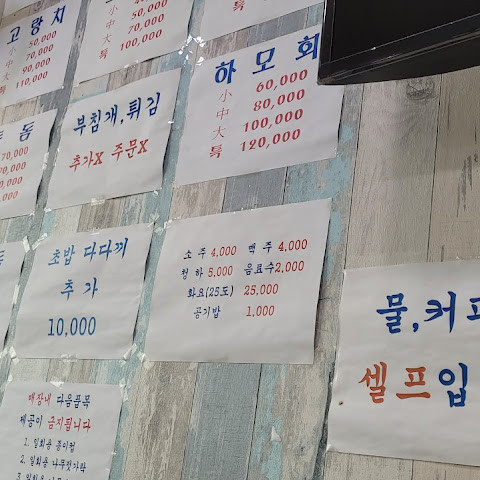 고랑치
小 50,000
中 70,000
大 90,000
특 110,000
50,000
小
中 70,000
大
특 100,000
특
하모회
小 60,000
中 80,000
大 100,000
특 120,000
돔
70,000
부침개,튀김
추가X 주문X
초밥 다다끼
추가
10,000
소주 4,000 맥주 4,000
청하 5,000 음료수 2,000
화요(25도) 25,000
공기밥 1,000
물,커피
셀프입
매장내 다음품목
제공이 금지됩니다
1. 일회용 종이컵
2. 일회용 나무젓가락